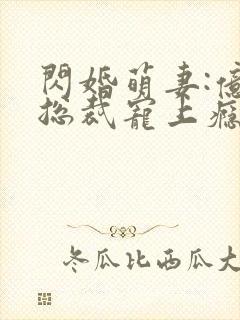 閃婚萌妻:億
总裁宠上瘾
冬瓜比西瓜大